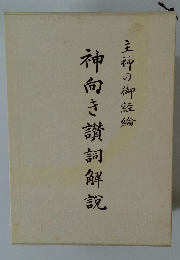 主神の御経綸
神向き讃詞解説